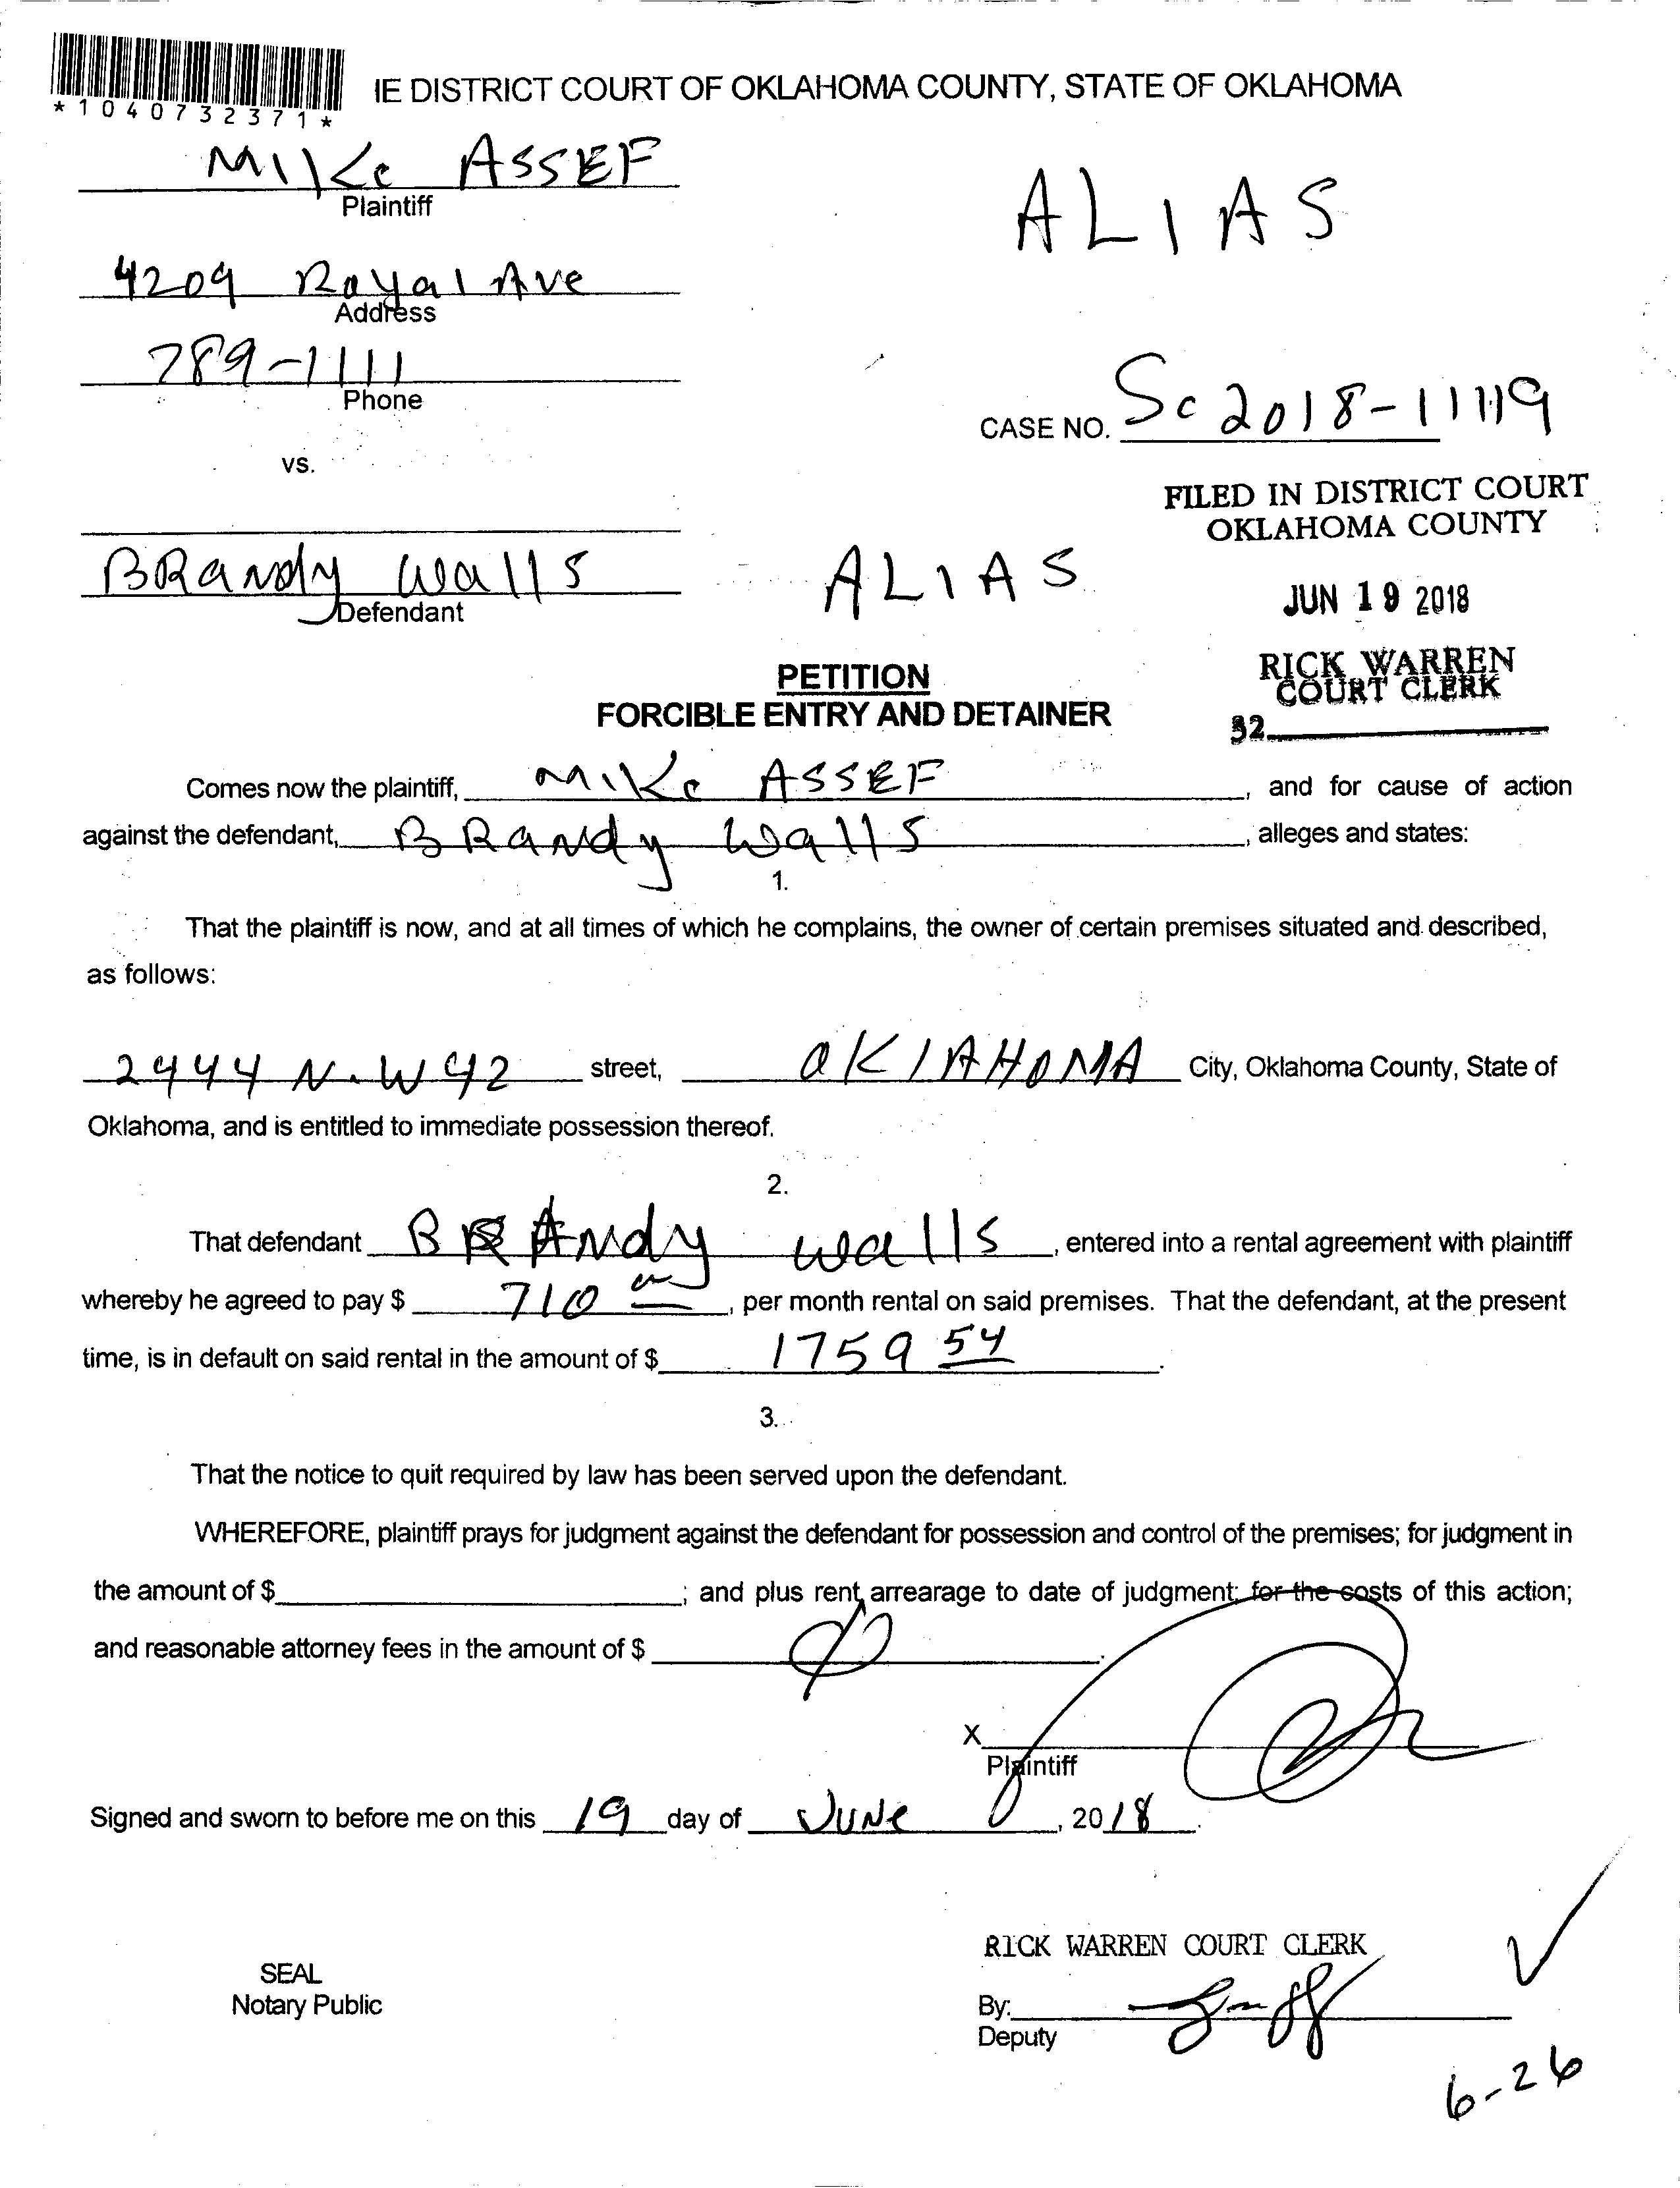 IE DISTRICT COURT OF OKLAHOMA COUNTY, STATE OF OKLAHOMA
*1040732371*
MIKe ASSEF
Plaintiff
ALIAS
4209 Royal Ave
Address
789-1111
Phone
CASE NO. Sc 2018-11119
vs.
FILED IN DISTRICT COURT
OKLAHOMA COUNTY
BRandy walls
Defendant
ALIAS
JUN 19 2018
PETITION
FORCIBLE ENTRY AND DETAINER
RICK WARREN
COURT CLERK
32
Comes now the plaintiff, MIKe ASSEF, and for cause of action
against the defendant, BRandy walls, alleges and states:
1.
That the plaintiff is now, and at all times of which he complains, the owner of certain premises situated and described,
as follows:
2444 N.W 42 street, OKlAHOMA City, Oklahoma County, State of
Oklahoma, and is entitled to immediate possession thereof.
2.
That defendant BRANdy walls, entered into a rental agreement with plaintiff
whereby he agreed to pay $ 710, per month rental on said premises. That the defendant, at the present
time, is in default on said rental in the amount of $ 1759 54.
3.
That the notice to quit required by law has been served upon the defendant.
WHEREFORE, plaintiff prays for judgment against the defendant for possession and control of the premises; for judgment in
the amount of $ ; and plus rent arrearage to date of judgment; for the costs of this action;
and reasonable attorney fees in the amount of $ .
X
Plaintiff
Signed and sworn to before me on this 19 day of JUNe, 2018.
RICK WARREN COURT CLERK
SEAL
Notary Public
By:
Deputy
6-26